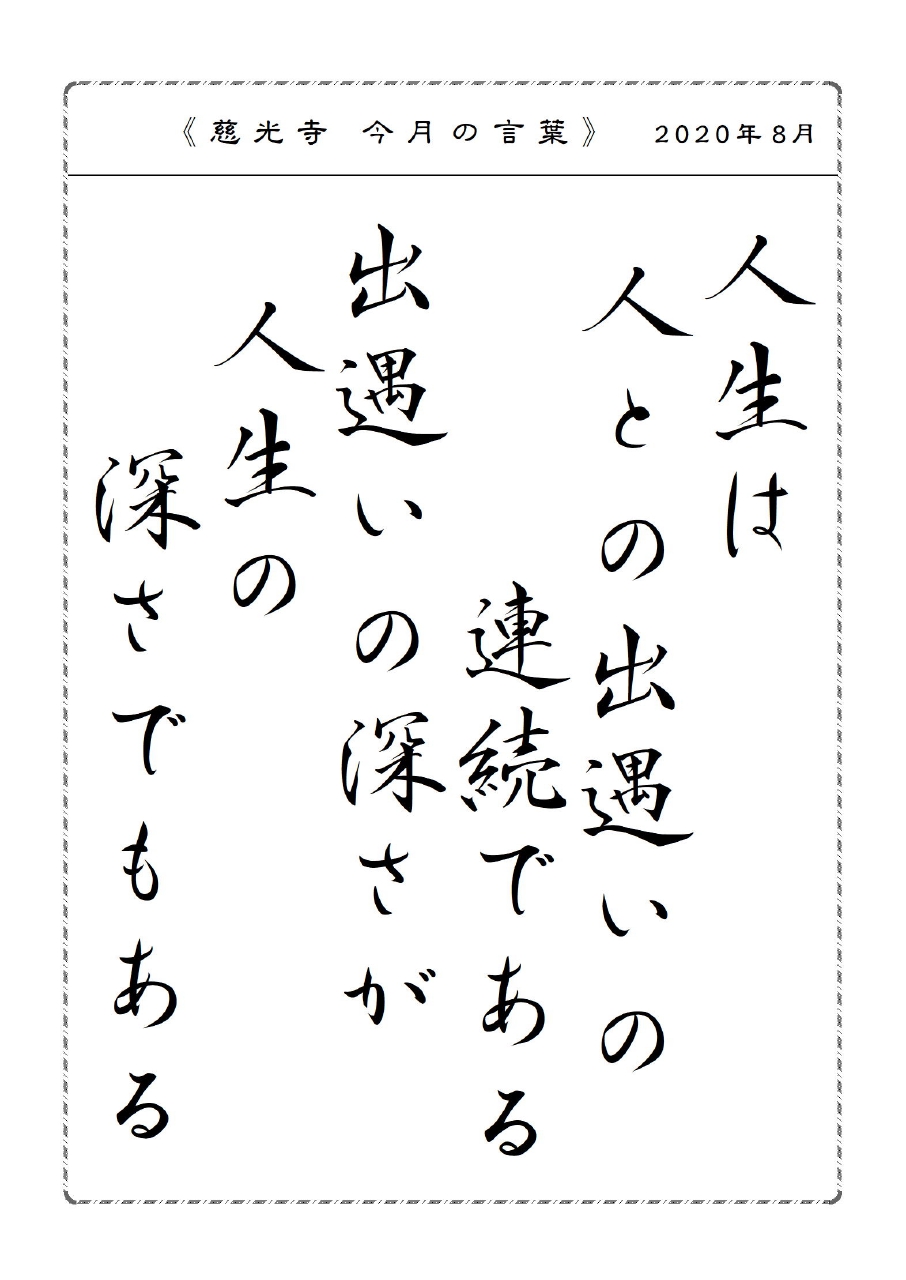 《慈光寺 今月の言葉》 2020年8月
人生は
人との出遇いの
連続である
出遇いの深さが
人生の
深さでもある